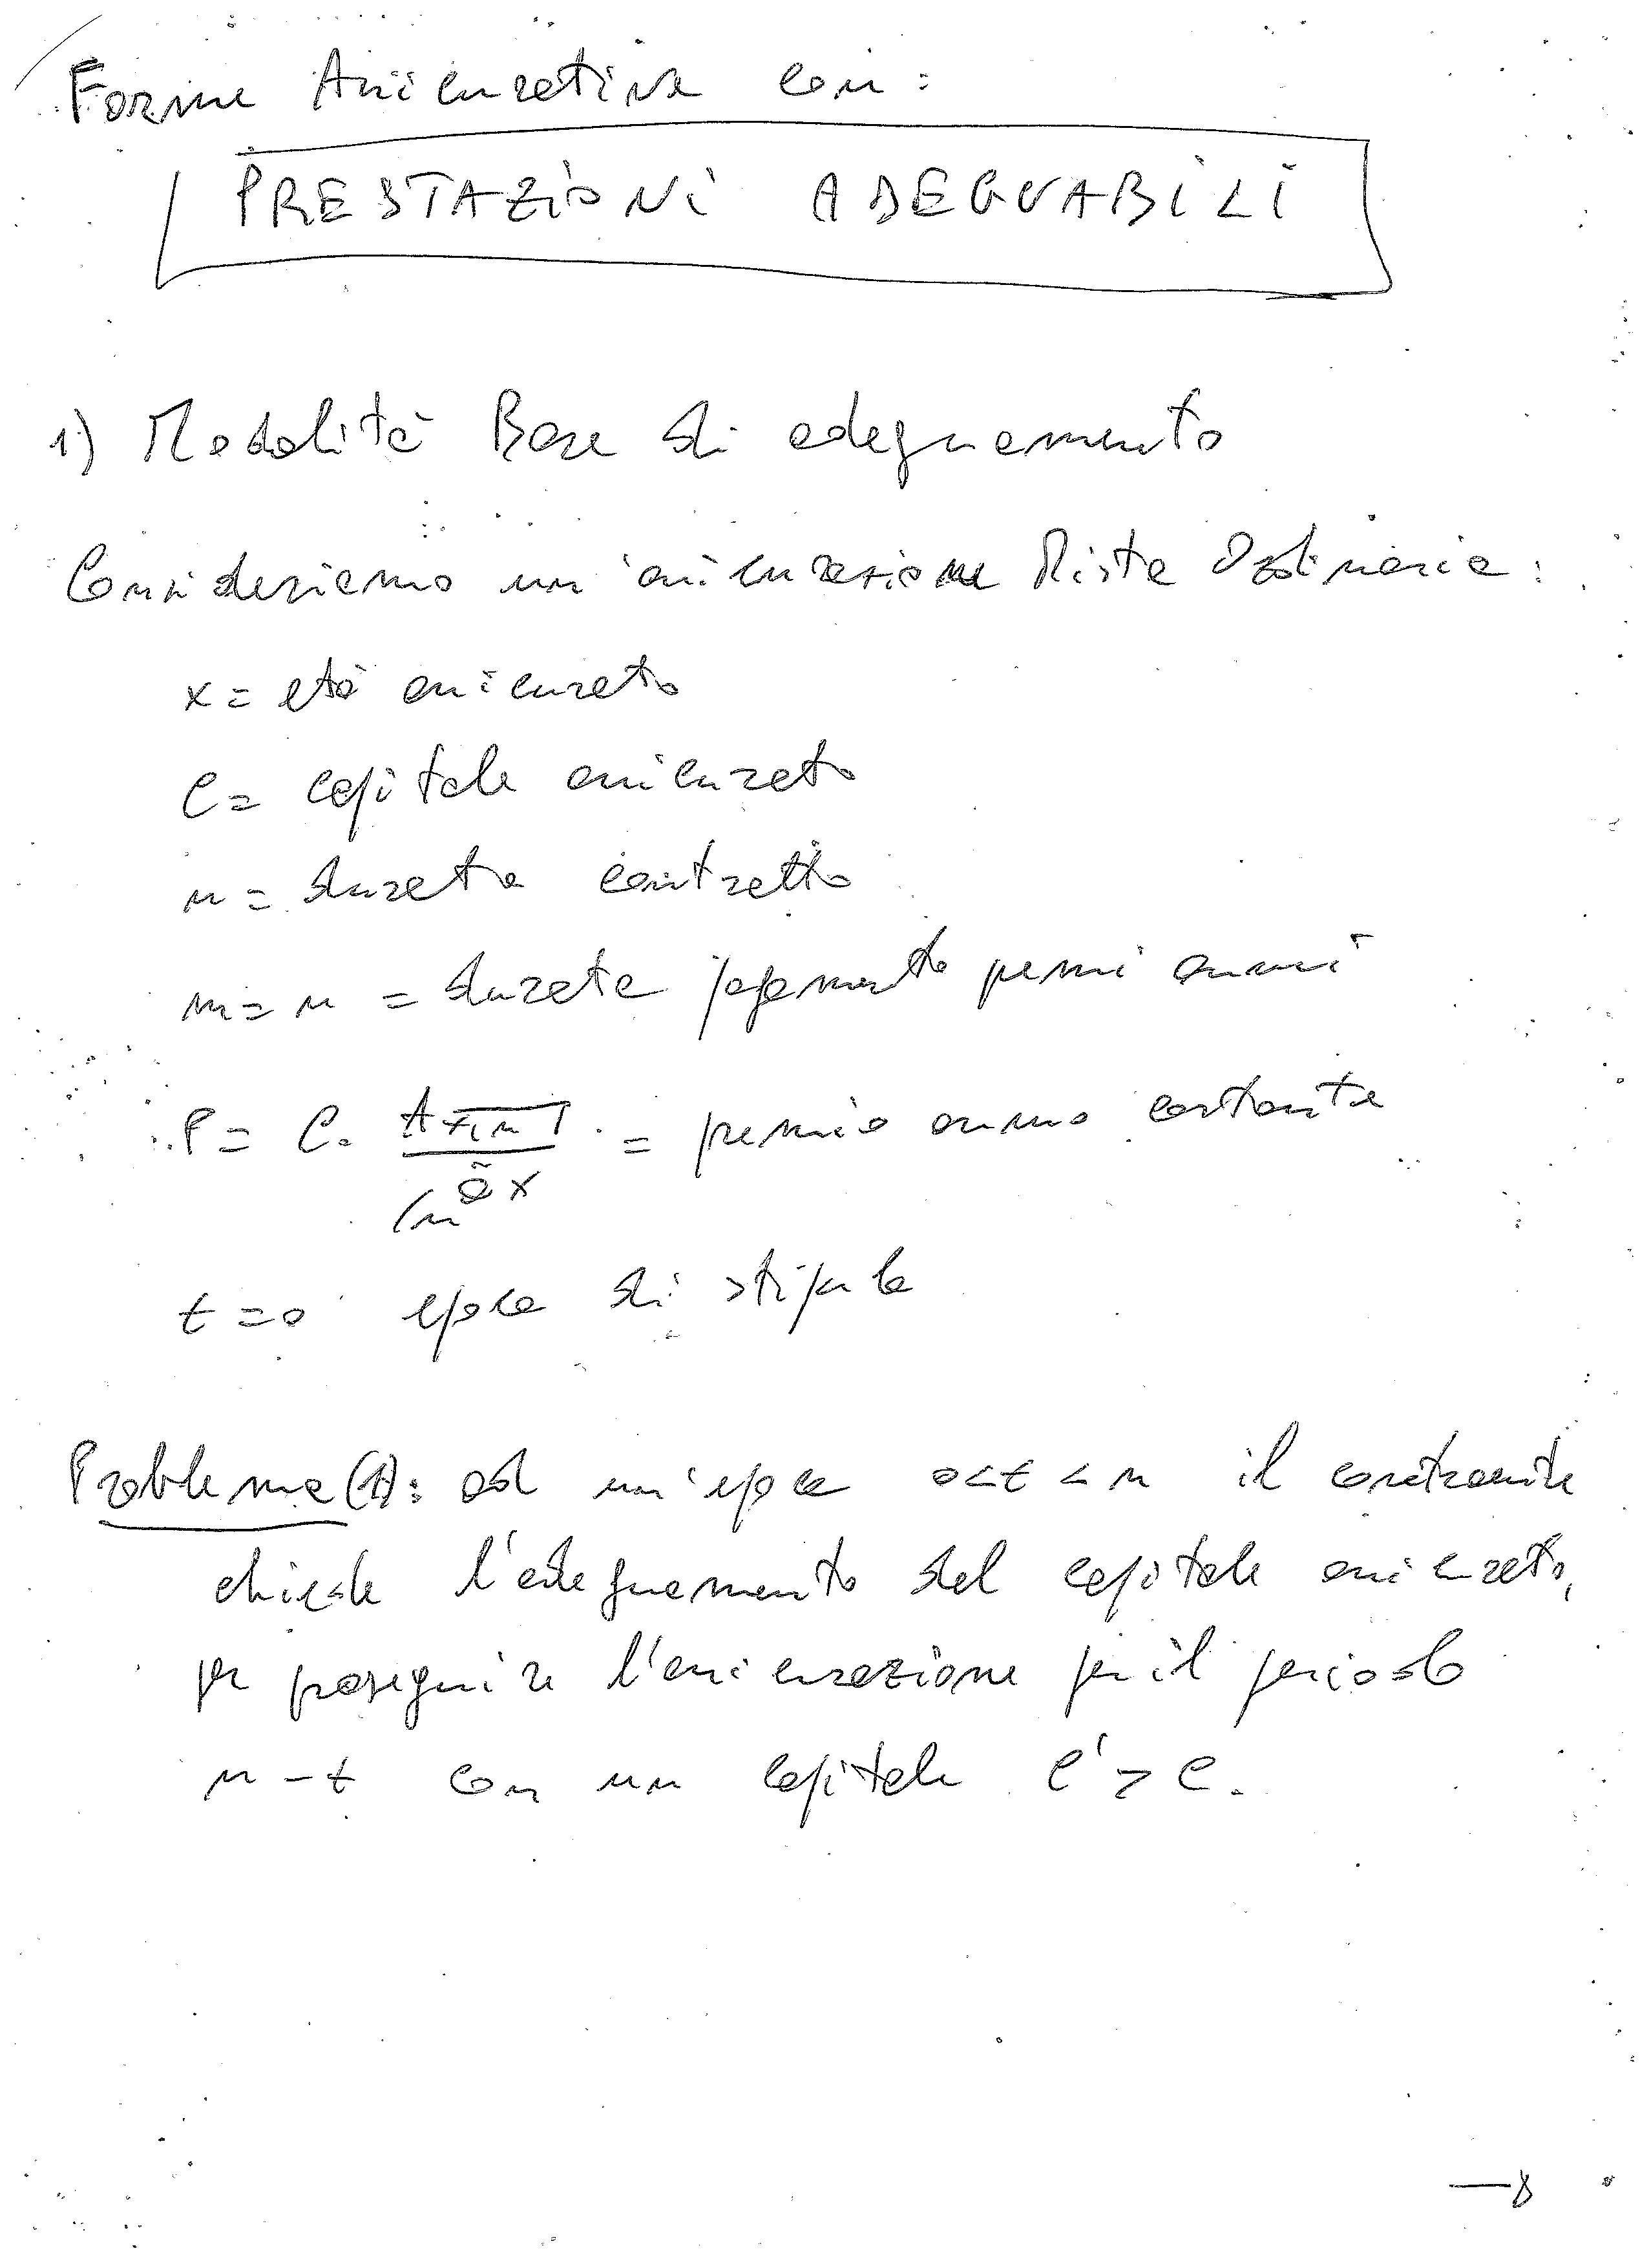 Forme Assicurative con:
PRESTAZIONI ADEGUABILI
1) Modalità Base di adeguamento
Consideriamo un'assicurazione Mista Ordinaria:
x = età assicurato
C = capitale assicurato
n = durata contratto
m = n = durata pagamento premi annui
P = C · A x,n̅| / /n ä x = premio annuo costante
t = 0 epoca di stipula
Problema (1): ad un'epoca 0 < t < n il contraente
chiede l'adeguamento del capitale assicurato,
per proseguire l'assicurazione per il periodo
n - t con un capitale C' > C.